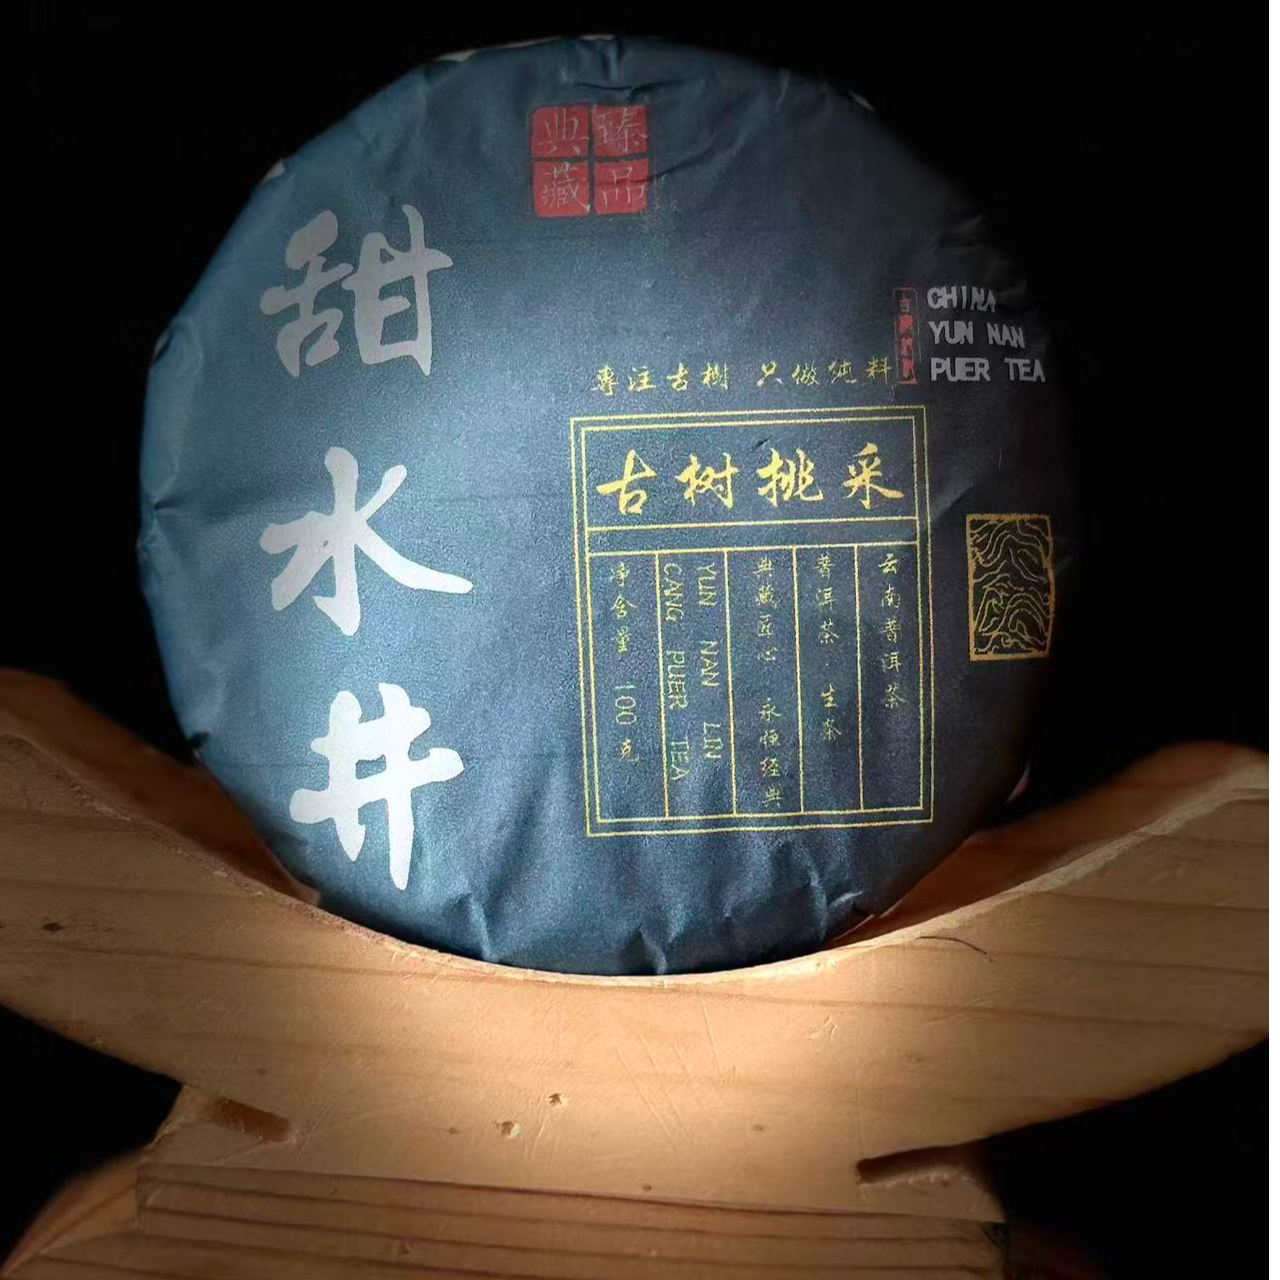 臻品
典藏
甜水井
CHINA
YUN NAN
PUER TEA
專注古樹 只做纯料
古树挑采
云南普洱茶
普洱茶·生茶
典藏匠心 永恒经典
YUN NAN LIN
CANG PUER TEA
净含量 100克